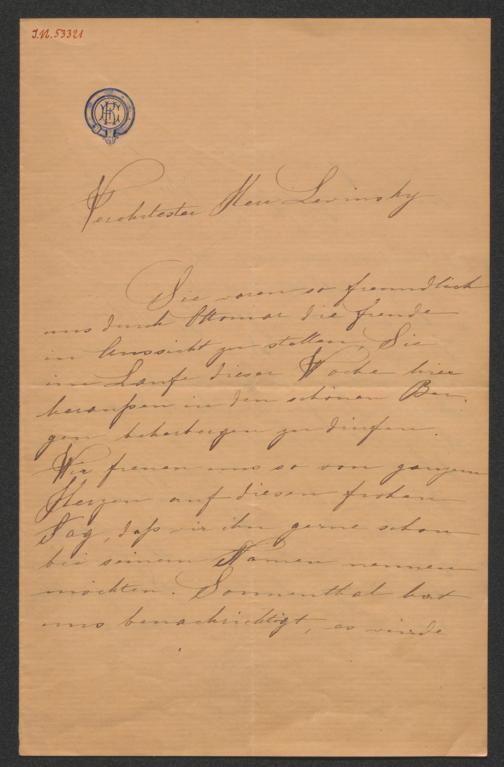 J.N. 53321
Verehrtester Herr Lewinsky
Sie waren so freundlich
uns durch Ottomar die freude
in Aussicht zu stellen, Sie
im Laufe dieser Woche hier
heraußen in den schönen Ber-
gen beherbergen zu dürfen.
Wir freuen uns so von ganzem
Herzen auf diesen frohen
Tag, daß wir ihn gerne schon
bei seinem Namen nennen
möchten. Sonnenthal hat
uns benachrichtigt, es würde